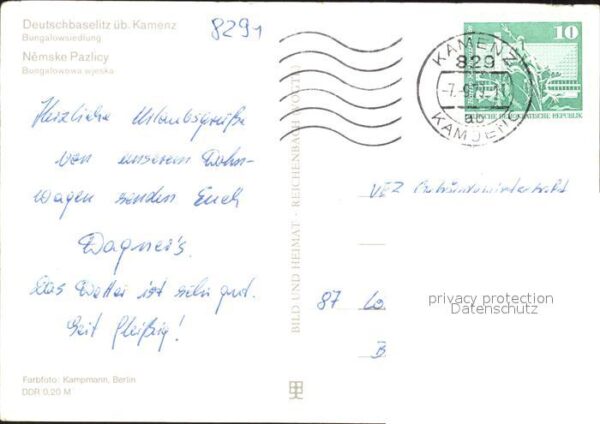 Deutschbaselitz üb. Kamenz
Bungalowsiedlung
Němske Pazlicy
Bungalowowa wjeska
8291
Herzliche Urlaubsgrüße
von unserem Wohn-
wagen senden Euch
Dagner's.
Das Wetter ist sehr gut.
Seit fleißig!
Farbfoto: Kampmann, Berlin
DDR 0,20 M
BILD UND HEIMAT · REICHENBACH (VOGTL)
10
DEUTSCHE DEMOKRATISCHE REPUBLIK
KAMENZ
829
ab
KAMJENC
VEZ
87 Lö
B
privacy protection
Datenschutz